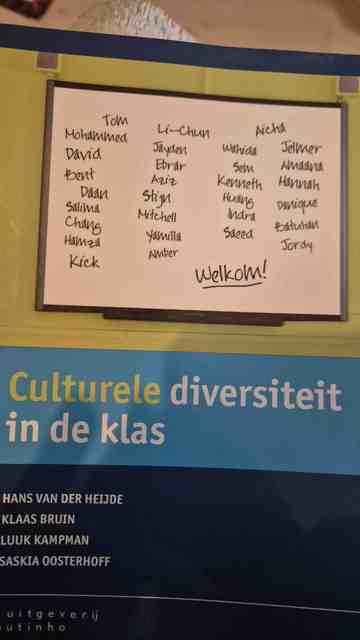 Tom
Mohammed
David
Bent
Daan
Salima
Chang
Hamza
Kick
Li-Chun
Jayden
Ebrar
Aziz
Stijn
Mitchell
Yamilla
Amber
Aicha
Wahida
Sem
Kenneth
Huang
Indra
Saeed
Jelmer
Amaana
Hannah
Danique
Batuhan
Jordy
Welkom!
Culturele diversiteit
in de klas
HANS VAN DER HEIJDE
KLAAS BRUIN
LUUK KAMPMAN
SASKIA OOSTERHOFF
uitgeverij
outinho